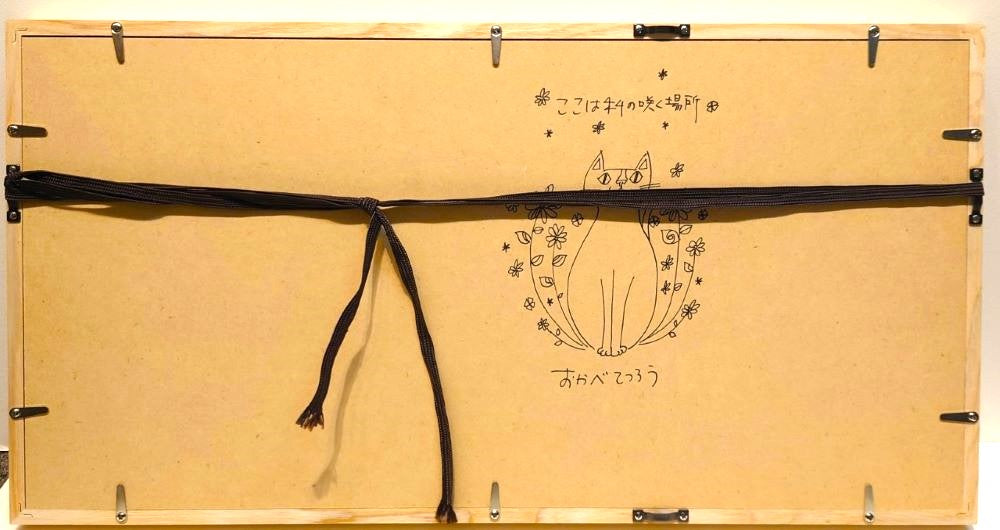 ここは私の咲く場所
おかべてつろう